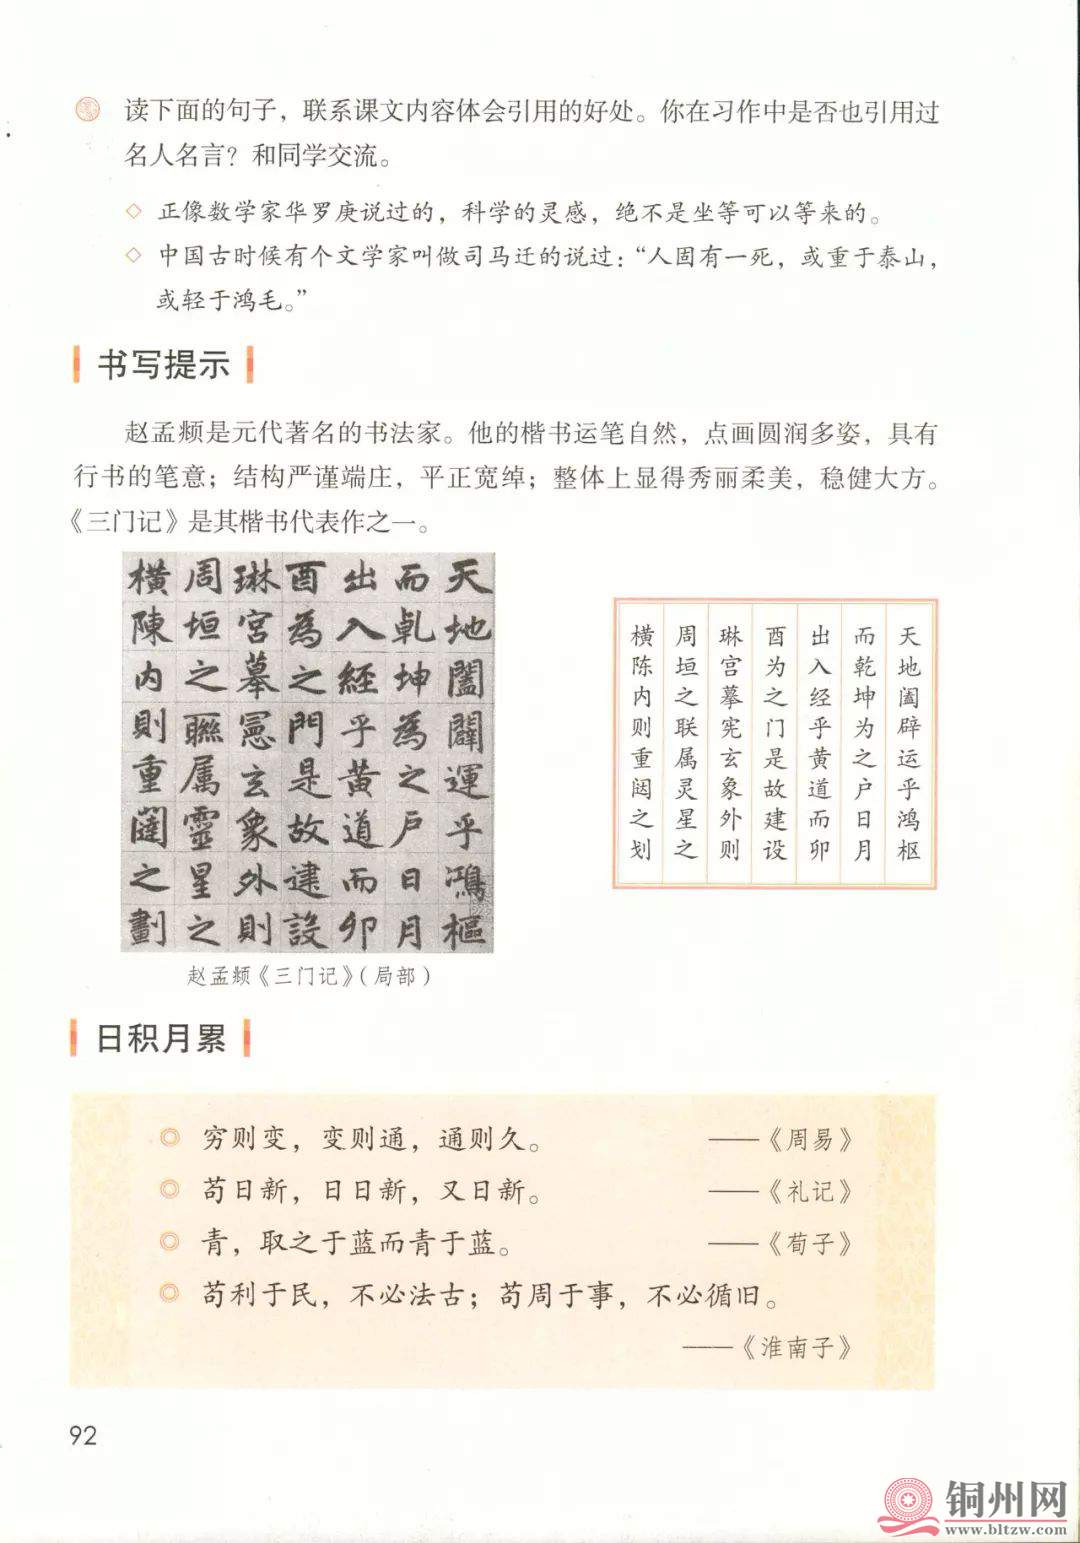 读下面的句子，联系课文内容体会引用的好处。你在习作中是否也引用过
名人名言？和同学交流。
◇ 正像数学家华罗庚说过的，科学的灵感，绝不是坐等可以等来的。
◇ 中国古时候有个文学家叫做司马迁的说过：“人固有一死，或重于泰山，
或轻于鸿毛。”
书写提示
赵孟𫖯是元代著名的书法家。他的楷书运笔自然，点画圆润多姿，具有
行书的笔意；结构严谨端庄，平正宽绰；整体上显得秀丽柔美，稳健大方。
《三门记》是其楷书代表作之一。
天地闔闢運乎鴻樞
而乹坤為之戶日月
出入經乎黄道而卯
酉為之門是故建設
琳宮摹憲玄象外則
周垣之聯属靈星之
橫陳内則重闥之劃
天地阖辟运乎鸿枢
而乾坤为之户日月
出入经乎黄道而卯
酉为之门是故建设
琳宫摹宪玄象外则
周垣之联属灵星之
横陈内则重闼之划
赵孟𫖯《三门记》（局部）
日积月累
◎ 穷则变，变则通，通则久。 ——《周易》
◎ 苟日新，日日新，又日新。 ——《礼记》
◎ 青，取之于蓝而青于蓝。 ——《荀子》
◎ 苟利于民，不必法古；苟周于事，不必循旧。
——《淮南子》
92
铜州网
www.bltzw.com